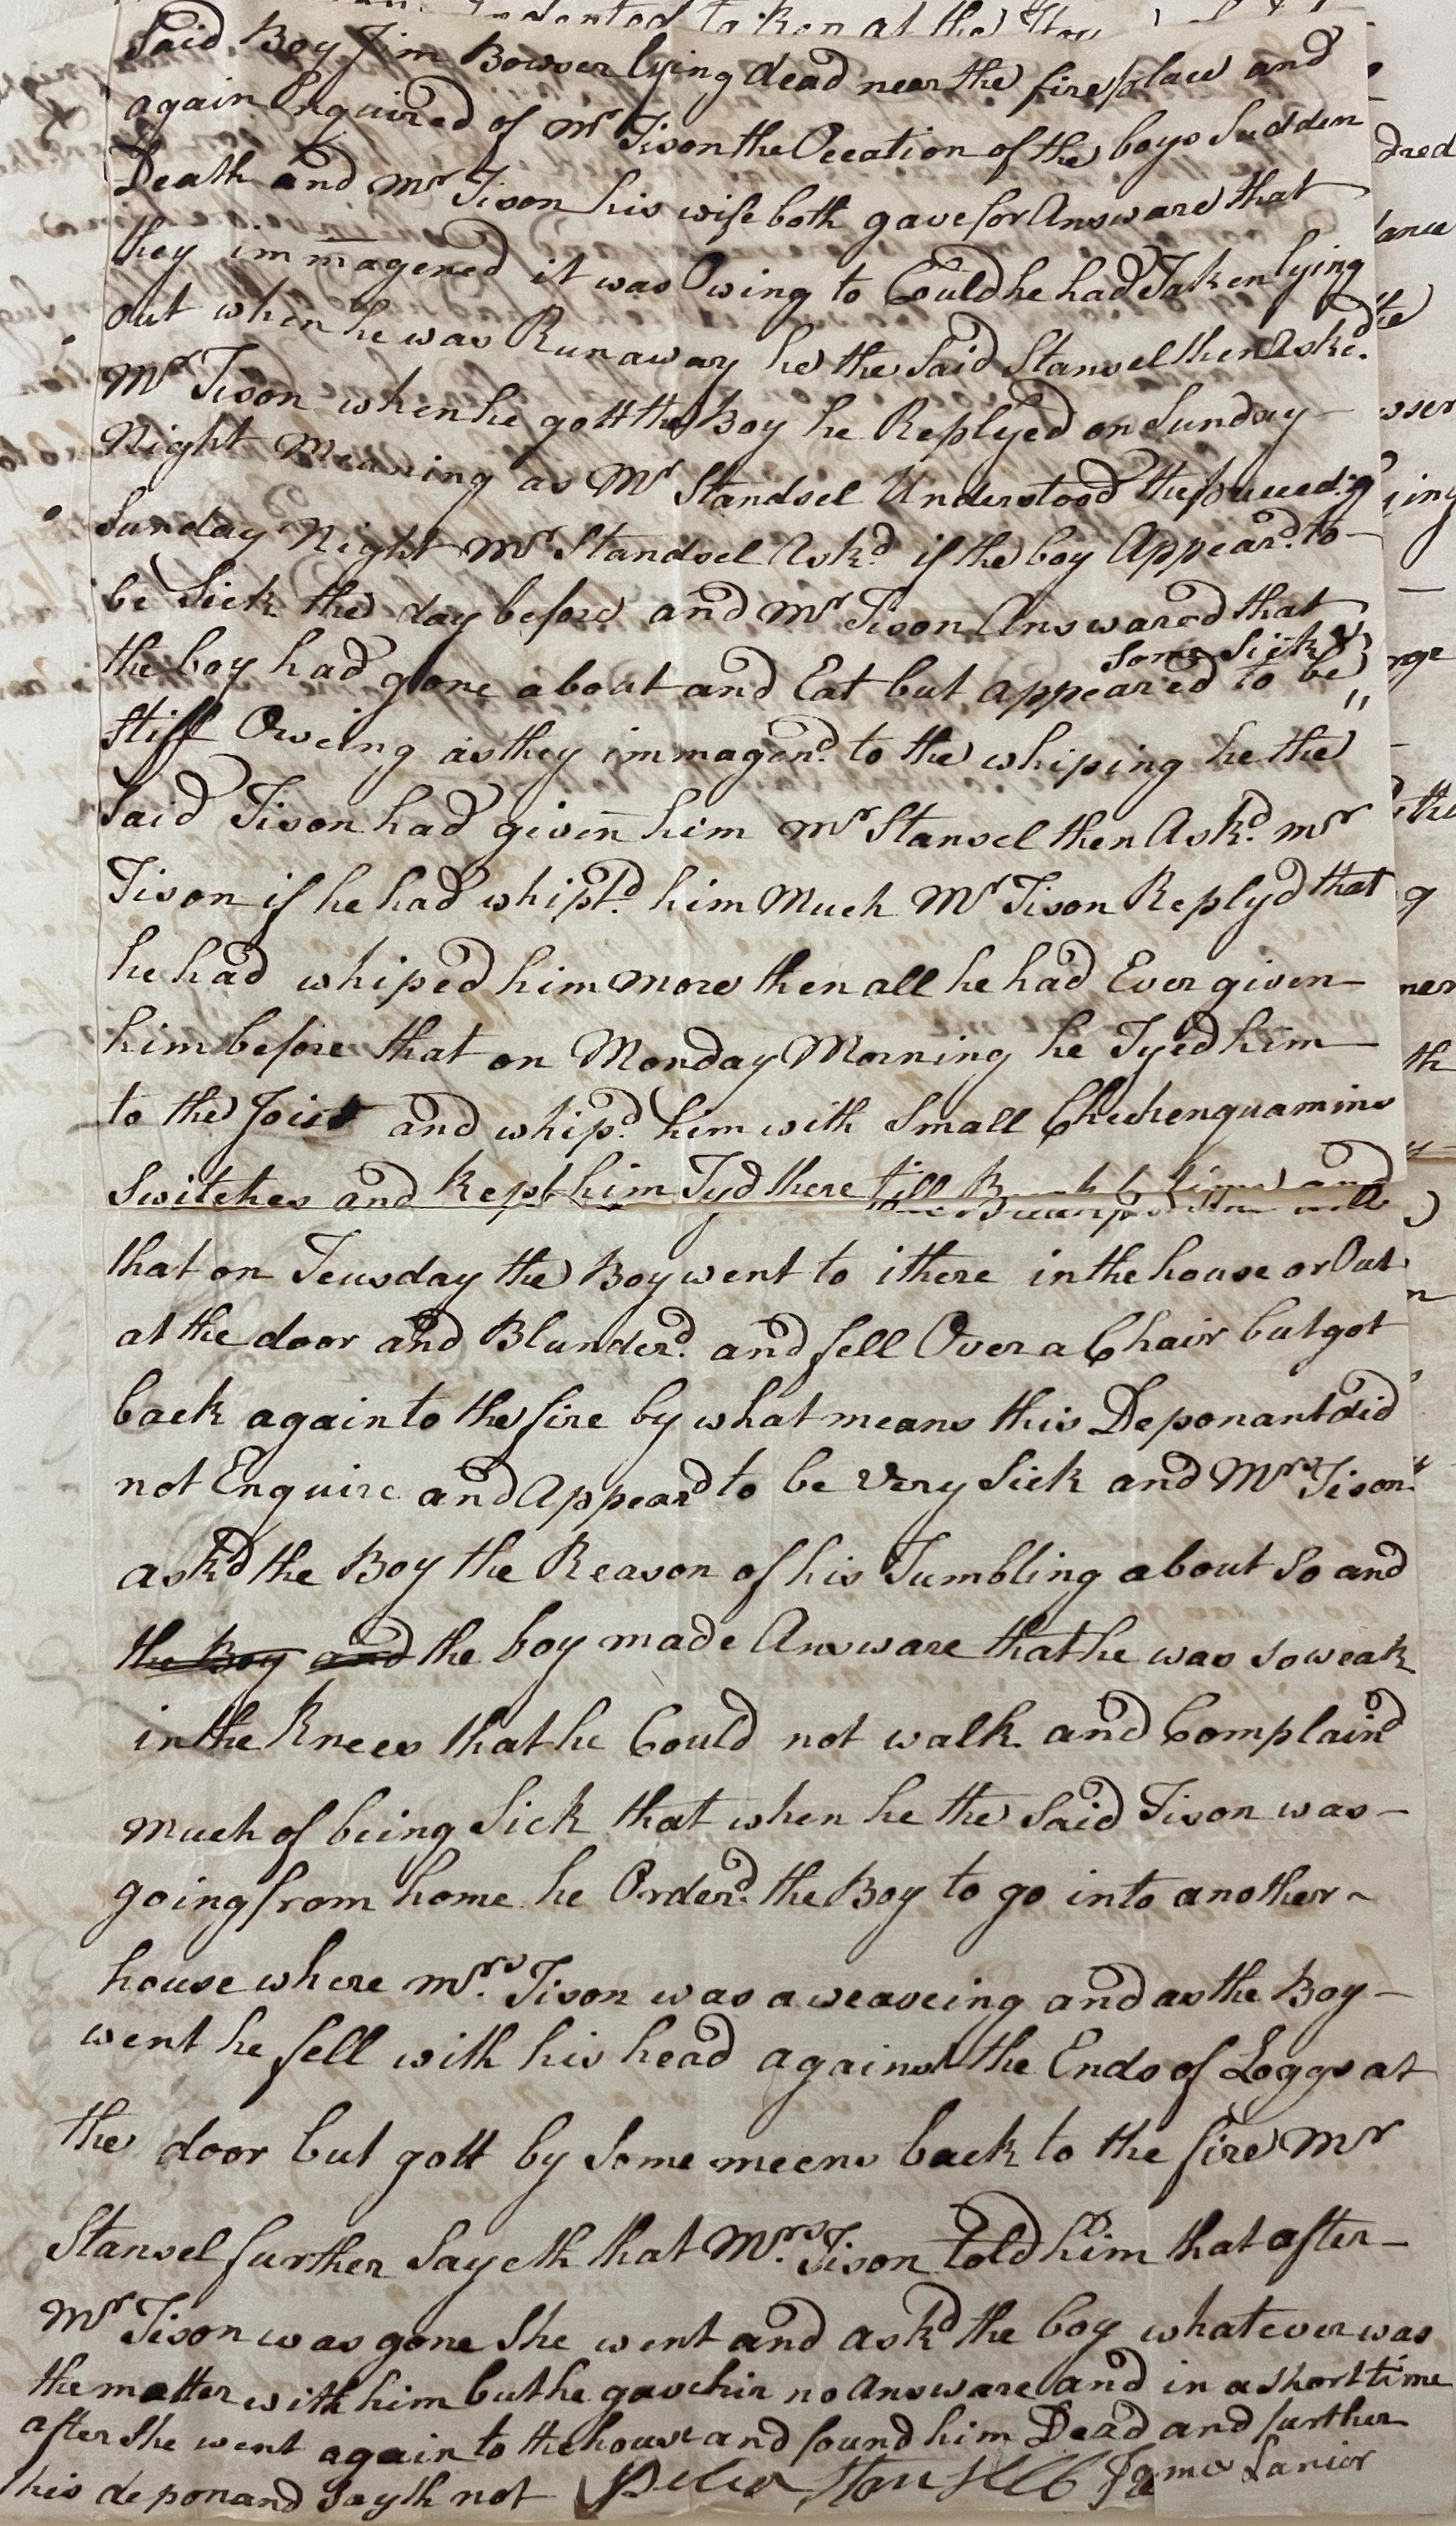 taken at the
Said Boy Jim Bowser lying dead near the fire place and
again Enquired of Mr Tison the Occation of the boys Sudden
Death and Mr Tison his wife both gave for Answare that
they immagened it was Owing to Could he had Taken lying
out when he was Runaway he the Said Stansel then Askd.
Mr Tison when he gott the Boy he Replyed on Sunday
Night Meaning as Mr Standsel Understood the preceedg
Sunday Night Mr Standsel Askd if the boy Appeard. to
be Sick the day before and Mr Tison Answared that
some Sick &
the boy had gone about and Eat but appeared to be
stiff Oweing as they immagend. to the whiping he the
Said Tison had given him Mr Stansel then Askd. Mr
Tison if he had whiptd. him Much Mr Tison Replyd that
he had whiped him more then all he had Ever given
him before that on Monday Morning he Tyed him
to the Joist and whipd. him with Small Chechenquamins
Switches and kept him Tyd there till and
that on Teusday the Boy went to ithere in the house or Out
at the door and Blunderd. and fell Over a Chair but got
back again to the fire by what means this Deponant did
not Enquire and Appeard to be very Sick and Mrs Tison
askd the Boy the Reason of his Tumbling about So and
the Boy and the boy made Answare that he was so weak
in the Knees that he Could not walk and Complaind
much of being Sick that when he the Said Tison was
going from home he Orderd. the Boy to go into another
house where Mrs. Tison was a weaveing and as the Boy
went he fell with his head against the Ends of Loggs at
the door but gott by Some meens back to the fire Mr
Stansel further Sayeth that Mrs. Tison told him that after
Mr Tison was gone She went and askd the boy whatever was
the matter with him but he gave hir no Answare and in a short time
after She went again to the house and found him Dead and further
this deponand Sayth not Stansell James Lanier